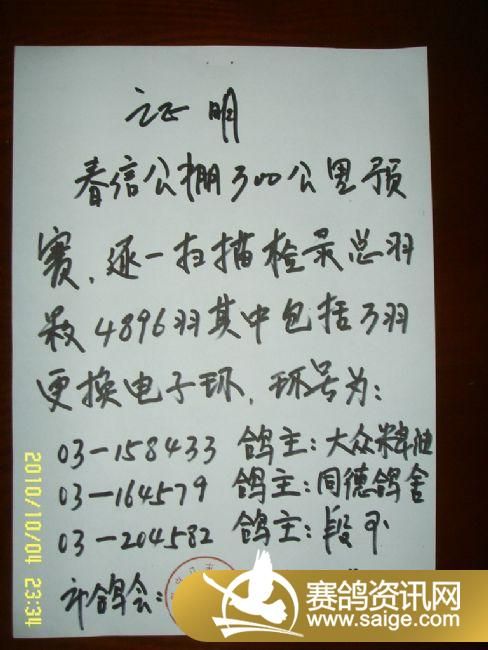 证明
春信公棚300公里预
赛,逐一扫描检录总羽
数4896羽其中包括3羽
更换电子环,环号为:
03-158433 鸽主:大众粮油
03-164579 鸽主:同德鸽舍
03-204582 鸽主:段
市鸽会:
2010/10/04 23:34
赛鸽资讯网
www.saige.com